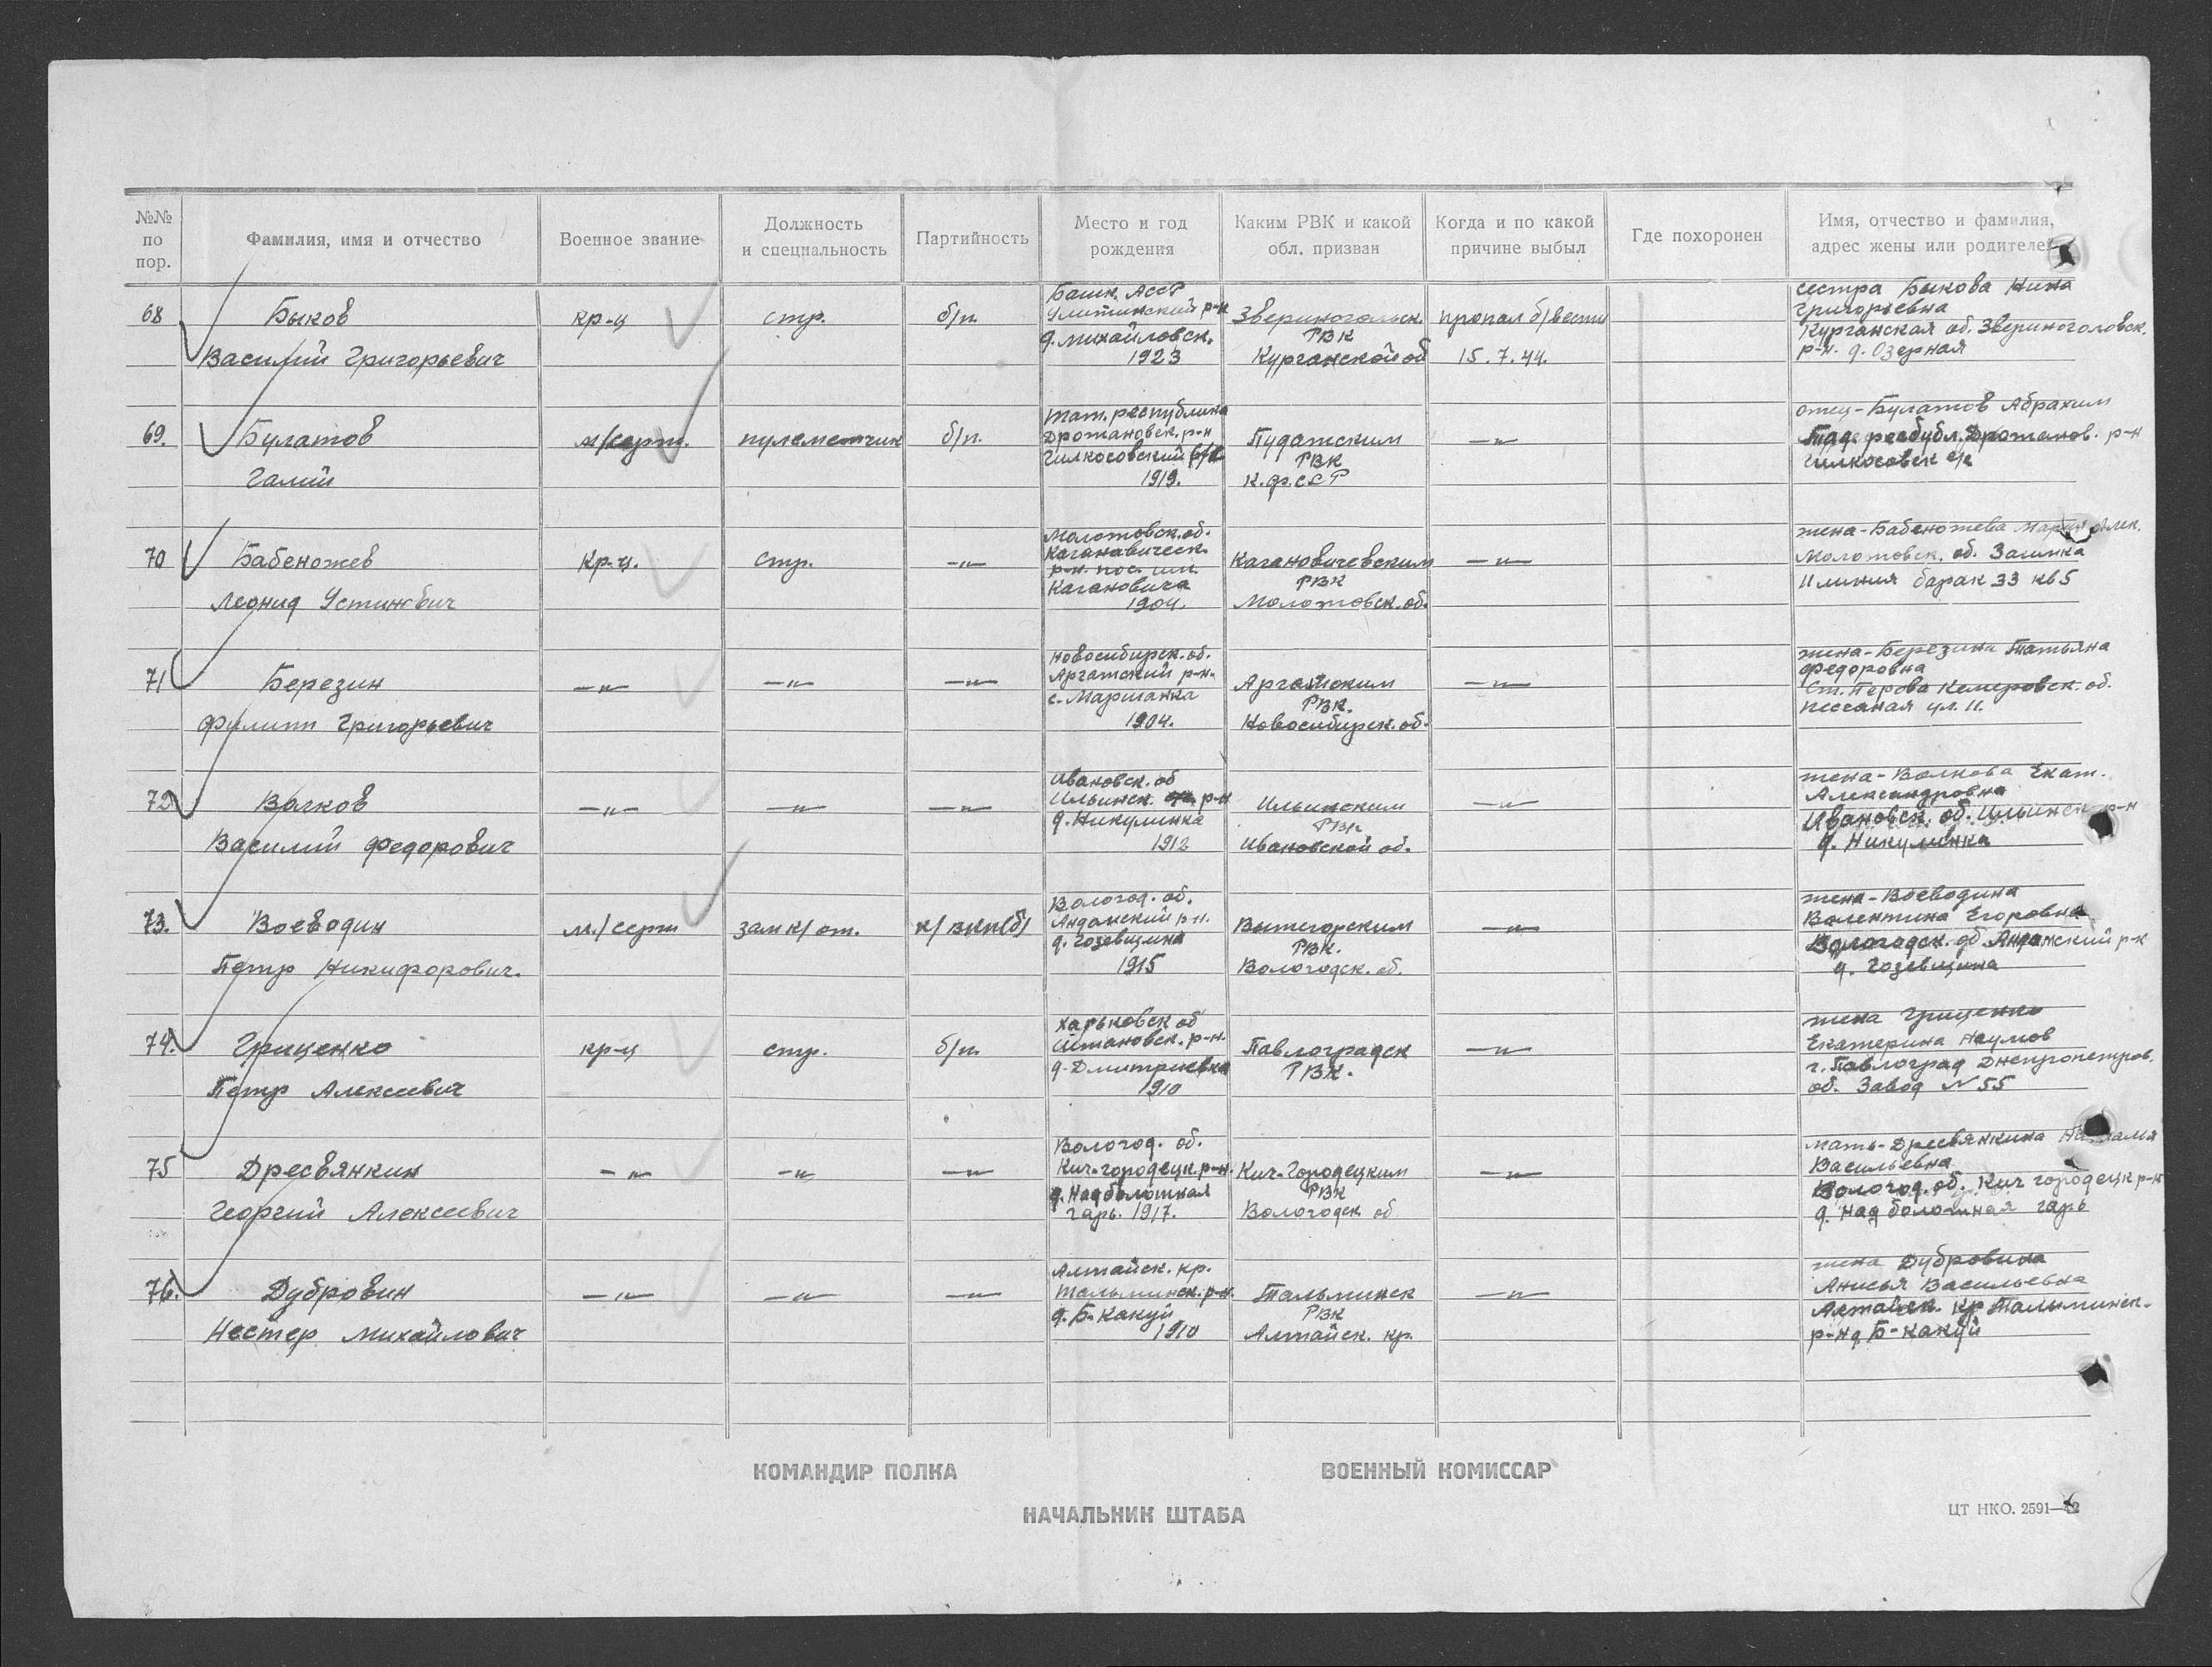 №№ по пор.
Фамилия, имя и отчество
Военное звание
Должность и специальность
Партийность
Место и год рождения
Каким РВК и какой обл. призван
Когда и по какой причине выбыл
Где похоронен
Имя, отчество и фамилия, адрес жены или родителей
68
Быков
Василий Григорьевич
кр-ц
стр.
б/п.
Башк. АССР
р-н
д. Михайловск.
1923
Звериногольск.
РВК
Курганской об
пропал б/вести
15.7.44.
сестра Быкова Нина
Григорьевна
Курганская об. Звериноголовск.
р-н. д. Озерная
69.
Булатов
Галий
м/серж.
пулеметчик
б/п.
Тат. республика
Дрожановск. р-н
Чилкосовский с/с
1919.
Пудожским
РВК
К.Ф.ССР
—"—
отец-Булатов Абрахим
Дрожанов. р-н
Чилкосовск с/с
70
Бабеножев
Леонид Устинович
Кр-ц.
стр.
—"—
Молотовск. об.
Кагановическ.
р-н. пос. им.
Кагановича
1904.
Кагановичевским
РВК
Молотовск. об.
—"—
жена-Бабеножева Мария Алек.
Молотовск. об. Заимка
II линия барак 33 кв 5
71
Березин
Филипп Григорьевич
—"—
—"—
—"—
Новосибирск. об.
р-н.
с. Марианка
1904.
РВК.
Новосибирск. об.
—"—
жена-Березина Татьяна
Федоровна
ст. Перова Кемеровск. об.
песчаная ул. 11.
72
Волков
Василий Федорович
—"—
—"—
—"—
Ивановск. об
Ильинск. р-н
д. Никулинка
1912
Ильинским
РВК
Ивановской об.
—"—
жена-Волкова Екат.
Александровна
Ивановск. об. Ильинск р-н
д. Никулинка
73.
Воеводин
Петр Никифорович.
м./серж
зам к/от.
к/ВКП(б)
Вологод. об.
Андомский р-н.
д. Гозевщина
1915
Вытегорским
РВК.
Вологодск. об.
—"—
жена-Воеводина
Валентина Егоровна
Вологодск. об Андомский р-н
д. Гозевщина
74.
Гриценко
Петр Алексеевич
кр-ц
стр.
б/п.
Харьковск об
р-н.
д. Дмитриевка
1910
Павлоградск
РВК.
—"—
жена Гриценко
Екатерина Наумов
г. Павлоград Днепропетров.
об. Завод N 55
75
Дресвянкин
Георгий Алексеевич
—"—
—"—
—"—
Вологод. об.
Кич-городецк. р-н.
д. Надболотная
гарь. 1917.
Кич-Городецким
РВК
Вологодск об
—"—
мать-Дресвянкина Наталия
Васильевна
Вологод. об. Кич городецк р-н
д. Над болотная гарь
76.
Дубровин
Нестер Михайлович
—"—
—"—
—"—
Алтайск. кр.
Тальминск. р-н.
д. Б-Какуй
1910
Тальминск
РВК
Алтайск. кр.
—"—
жена Дубровина
Анисья Васильевна
Алтайск. кр Тальминск.
р-н д. Б-какуй
КОМАНДИР ПОЛКА
ВОЕННЫЙ КОМИССАР
НАЧАЛЬНИК ШТАБА
ЦТ НКО. 2591—42